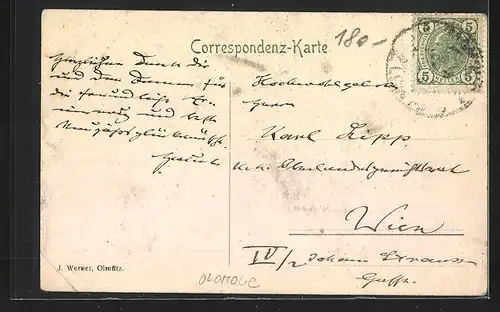 180-
Correspondenz-Karte
5 5
5 5
Herzlichen Dank Dir
und den Damen für
die freundliche
und beste
Neujahrsglückwünsche.
Hochwohlgeboren
Herrn
Karl Zipp
k.k. Oberlandesgerichtsrat
Wien
IV/2 Johann Strauss
Gasse.
J. Werner, Olmütz.
OLOMOUC